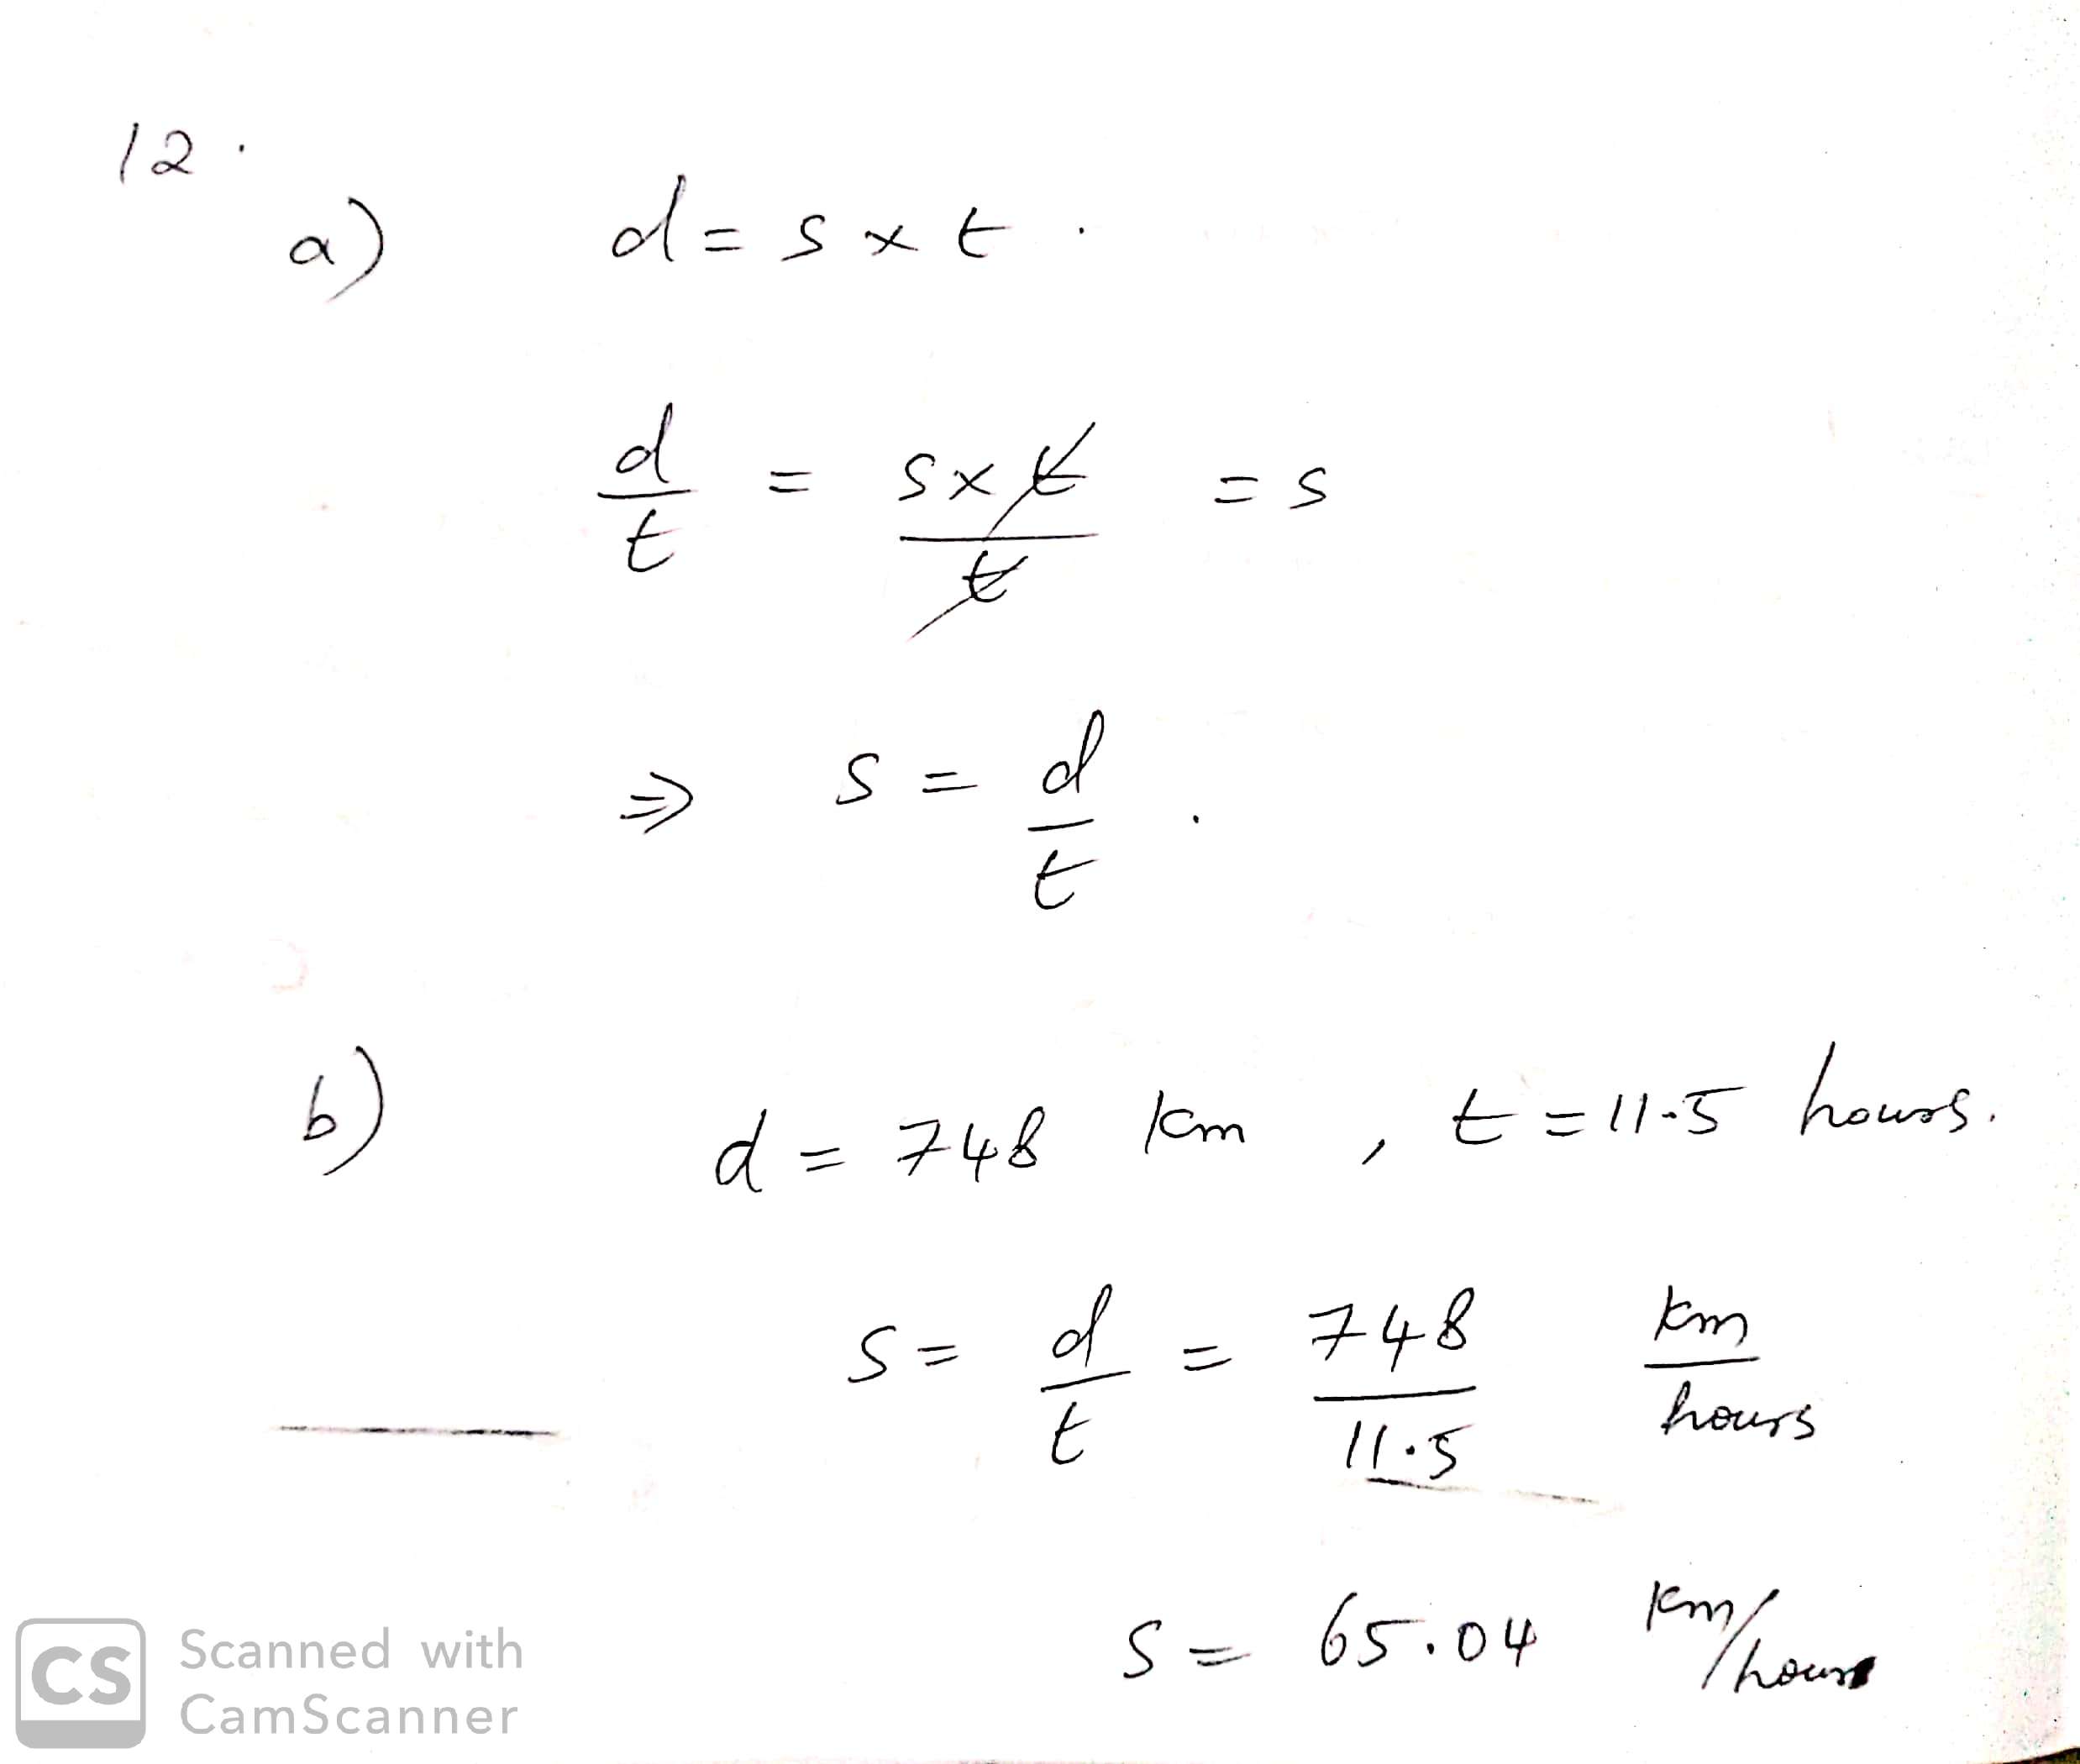 12.
a) d = s × t.
d/t = s × t/t = s
⇒ s = d/t.
b) d = 748 km, t = 11.5 hours.
s = d/t = 748/11.5 km/hours
s = 65.04 km/hours
CS Scanned with
CamScanner